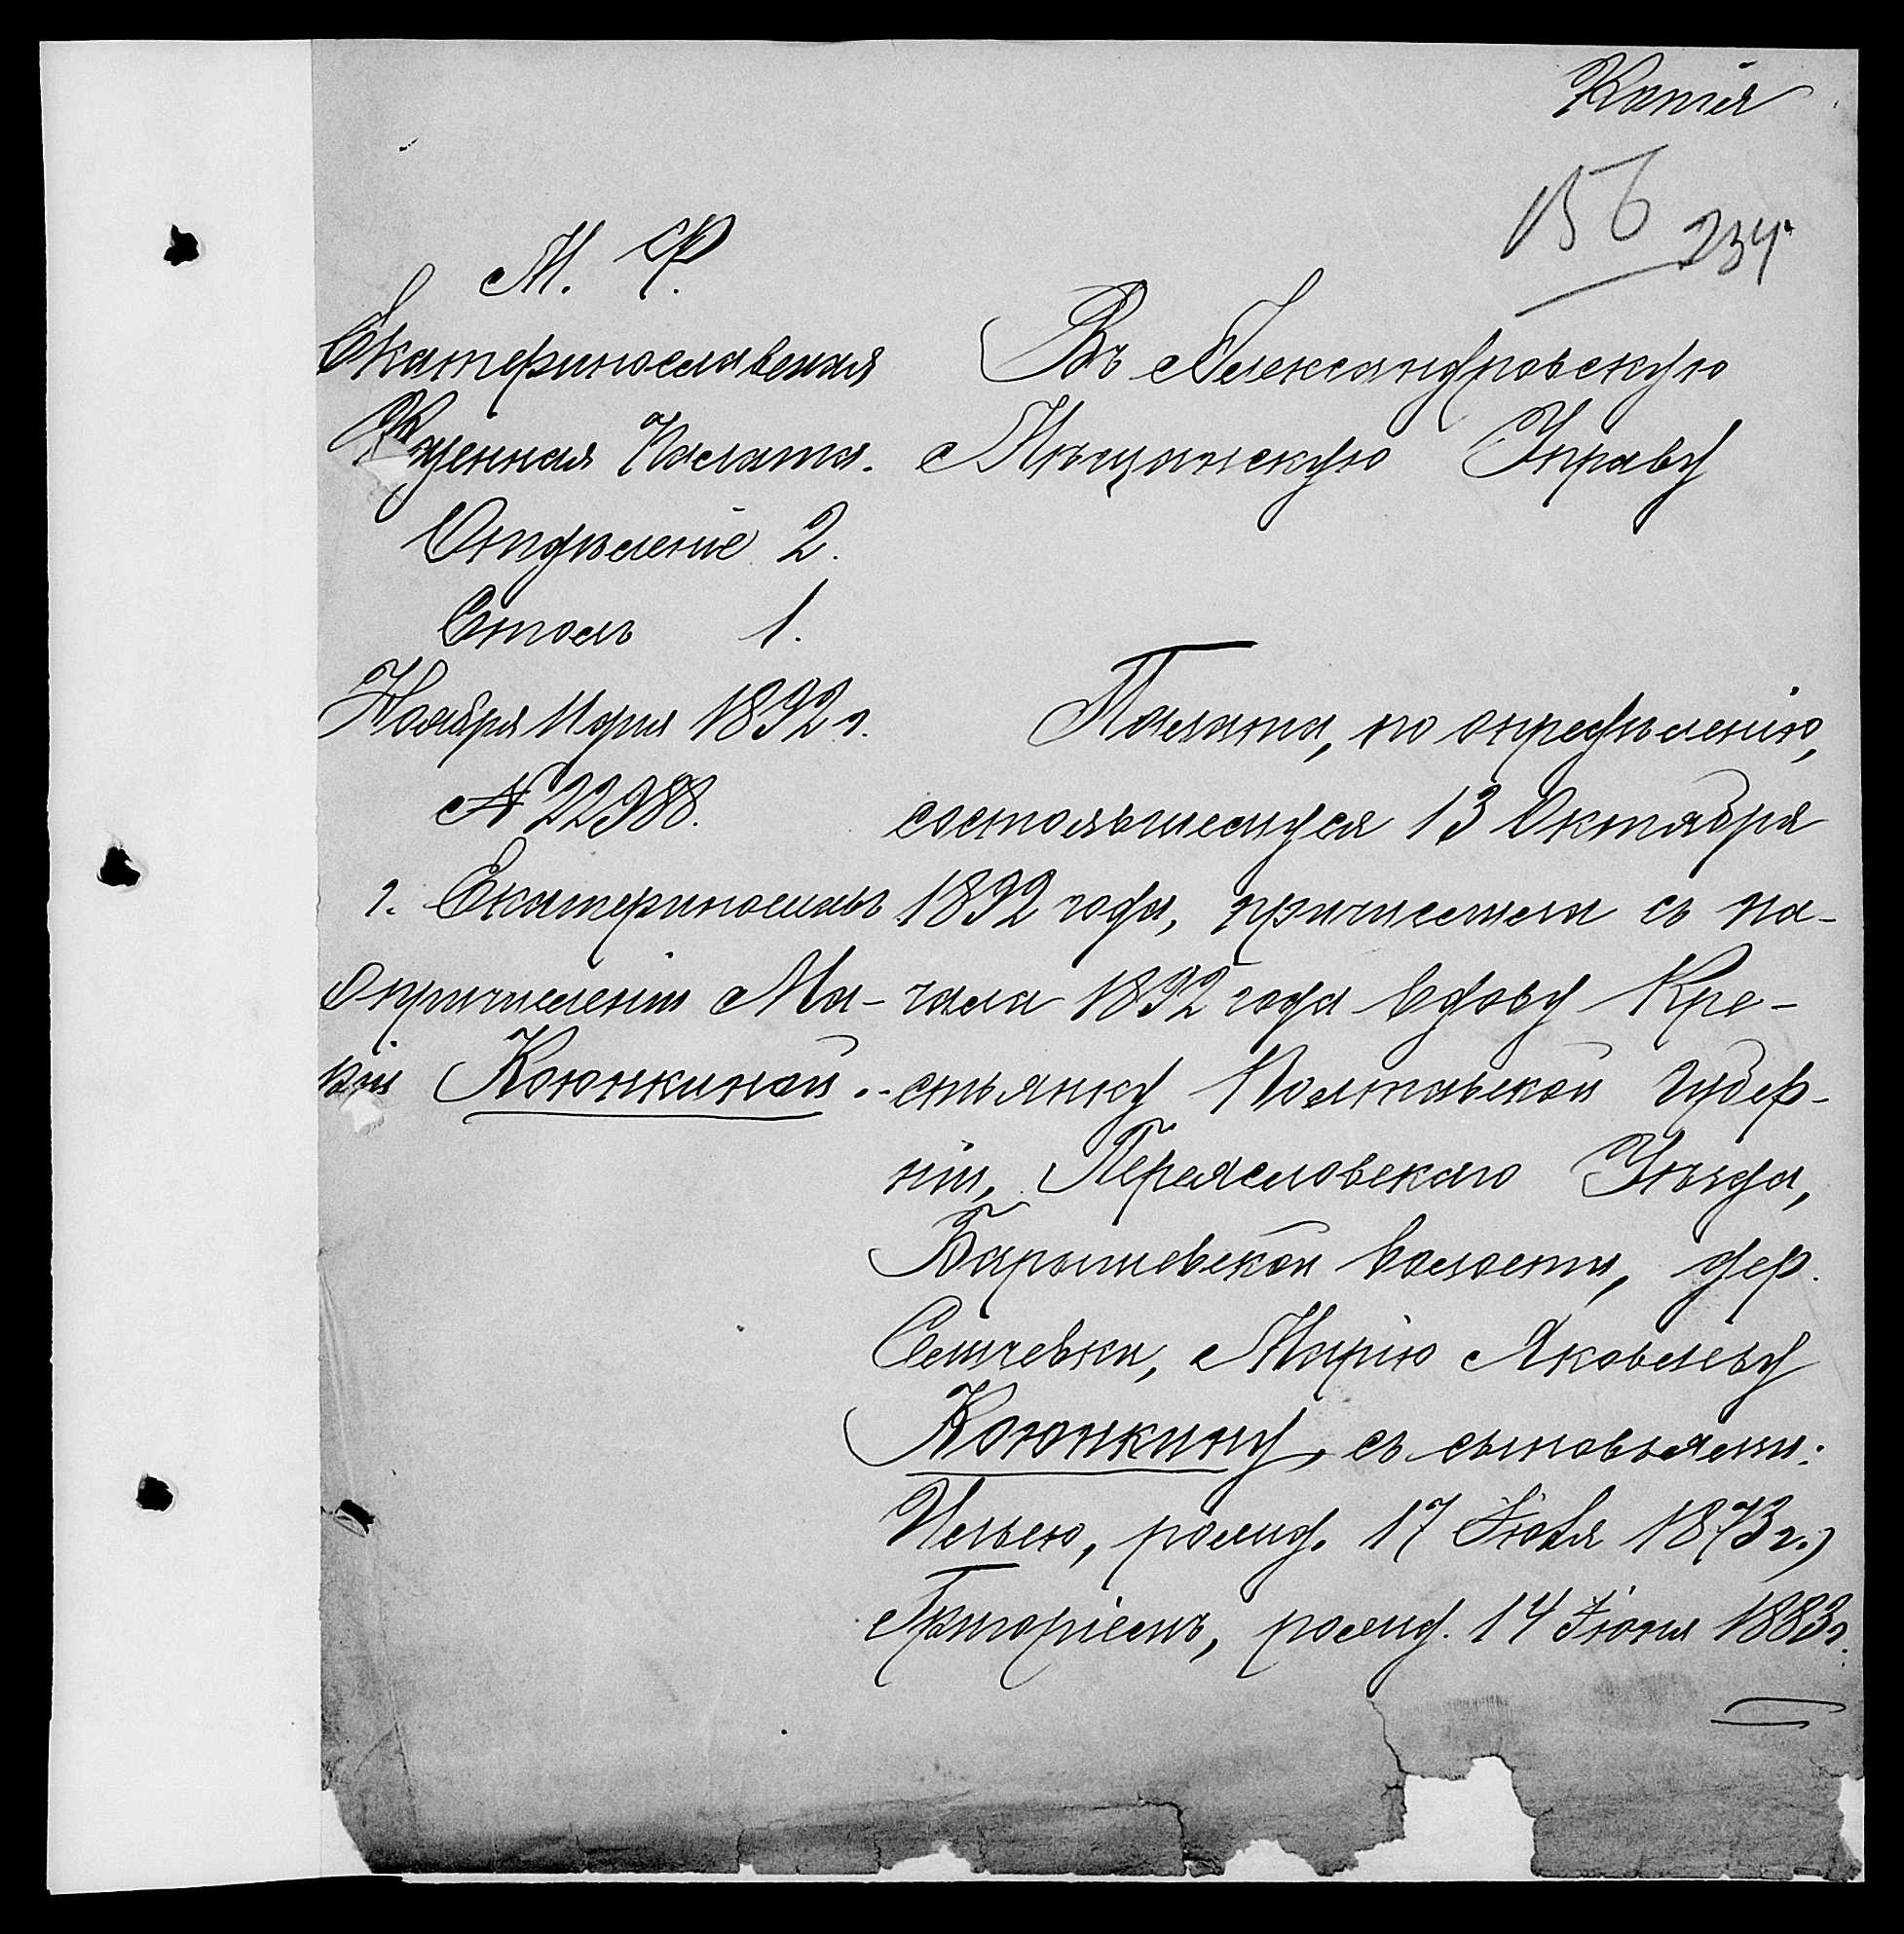 Копія
156
234
М. Ф.
Екатеринославская
Казенная Палата.
Отдѣленіе 2.
Столъ 1.
Ноября 11 дня 1892 г.
№ 22988.
г. Екатеринославъ
О причисленіи Ма-
ріи Коюнкиной.
Въ Александровскую
Мѣщанскую Управу
Палата, по опредѣленію,
состоявшемуся 13 Октября
1892 года, причислила съ на-
чала 1892 года вдову Кре-
стьянку Полтавской губер-
ніи, Переясловскаго Уѣзда,
Барышевской волости, дер.
Селичевки, Марію Яковлеву
Коюнкину, съ сыновьями:
Ильею, рожд. 17 Іюля 1873 г.,
Григоріемъ, рожд. 14 Іюня 1883 г.